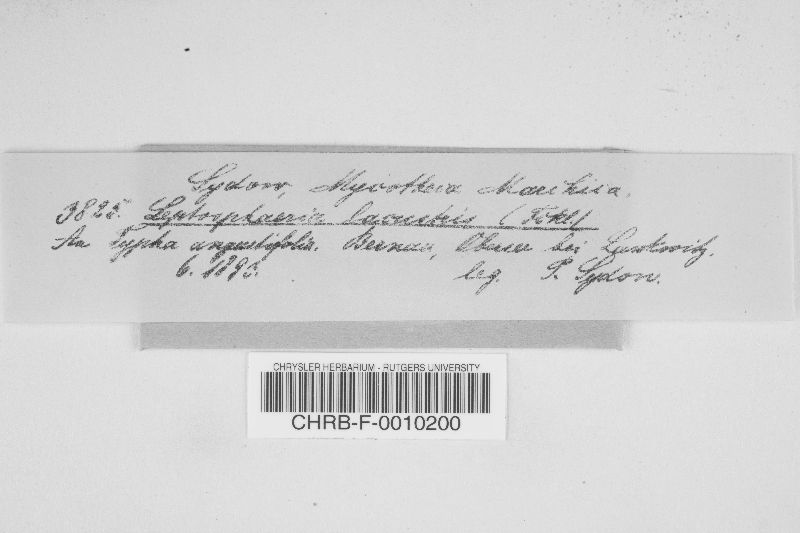 Sydow, Mycotheca Marchica.
3825. Leptosphaeria lacustris (Fckl)
An Typha angustifolia. Bernau, bei
6. 1895. leg. P. Sydow.
CHRYSLER HERBARIUM - RUTGERS UNIVERSITY
CHRB-F-0010200